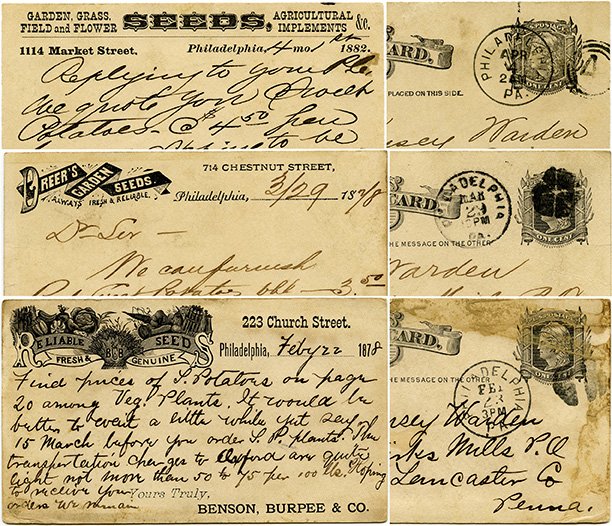 GARDEN, GRASS,
FIELD and FLOWER
SEEDS,
AGRICULTURAL
IMPLEMENTS
&c.
1114 Market Street. Philadelphia, 4 mo 1st 1882.
Replying to your P.C.
we quote you Sweet
Potatoes - $4.50 per
to be
CARD.
PLACED ON THIS SIDE.
PHILADELPHIA
APR
2 AM
PA.
POSTAGE
ONE CENT
Warden
DREER'S
GARDEN
SEEDS.
ALWAYS FRESH & RELIABLE.
714 CHESTNUT STREET,
Philadelphia, 3/29 1878
Dr Sir
We can furnish
3.50
CARD.
THE MESSAGE ON THE OTHER
PHILADELPHIA
MAR
29
PM
PA.
ONE CENT
Warden
RELIABLE SEEDS
FRESH & GENUINE
B&B
223 Church Street.
Philadelphia, Feby 22 1878
Find prices of S. Potatoes on page
20 among Veg. Plants. It would be
better to wait a little while yet say
15 March before you order S.P. plants. The
transportation charges to Oxford are quite
light not more than 50 to 75 per 100 lbs. Hoping
to receive your
orders we remain
Yours Truly,
BENSON, BURPEE & CO.
CARD.
THE MESSAGE ON THE OTHER
PHILADELPHIA
FEB
23
3PM
ONE CENT
Warden
Mills P.O
Lancaster Co
Penna.